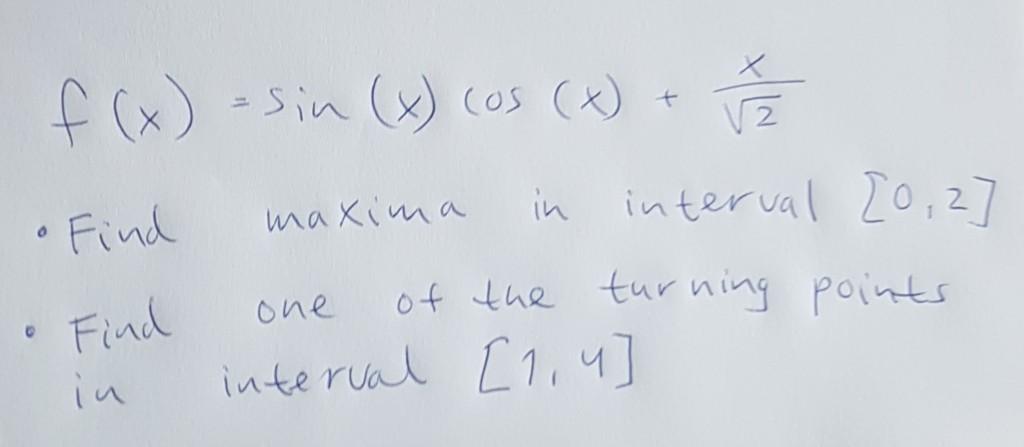 f(x) = sin(x) cos(x) + x/√2
• Find maxima in interval [0,2]
• Find one of the turning points
in interval [1,4]